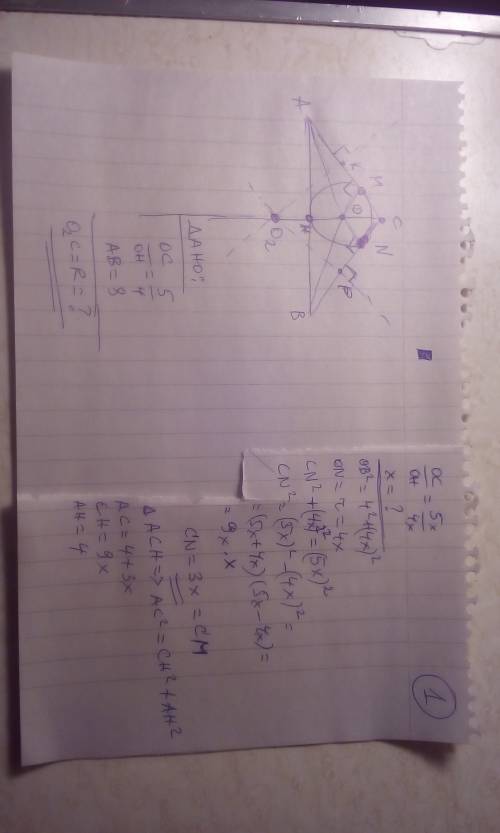 1
A
K
M
C
O
N
H
P
B
O₂
ДАНО:
OC/OH = 5/4
AB = 8
O₂C = R = ?
OC/OH = 5x/4x
x = ?
OB² = 4² + (4x)²
ON = r = 4x
CN² + (4x)² = (5x)²
CN² = (5x)² - (4x)² =
= (5x + 4x)(5x - 4x) =
= 9x · x
CN = 3x = CM
ΔACH => AC² = CH² + AH²
AC = 4 + 3x
CH = 9x
AH = 4